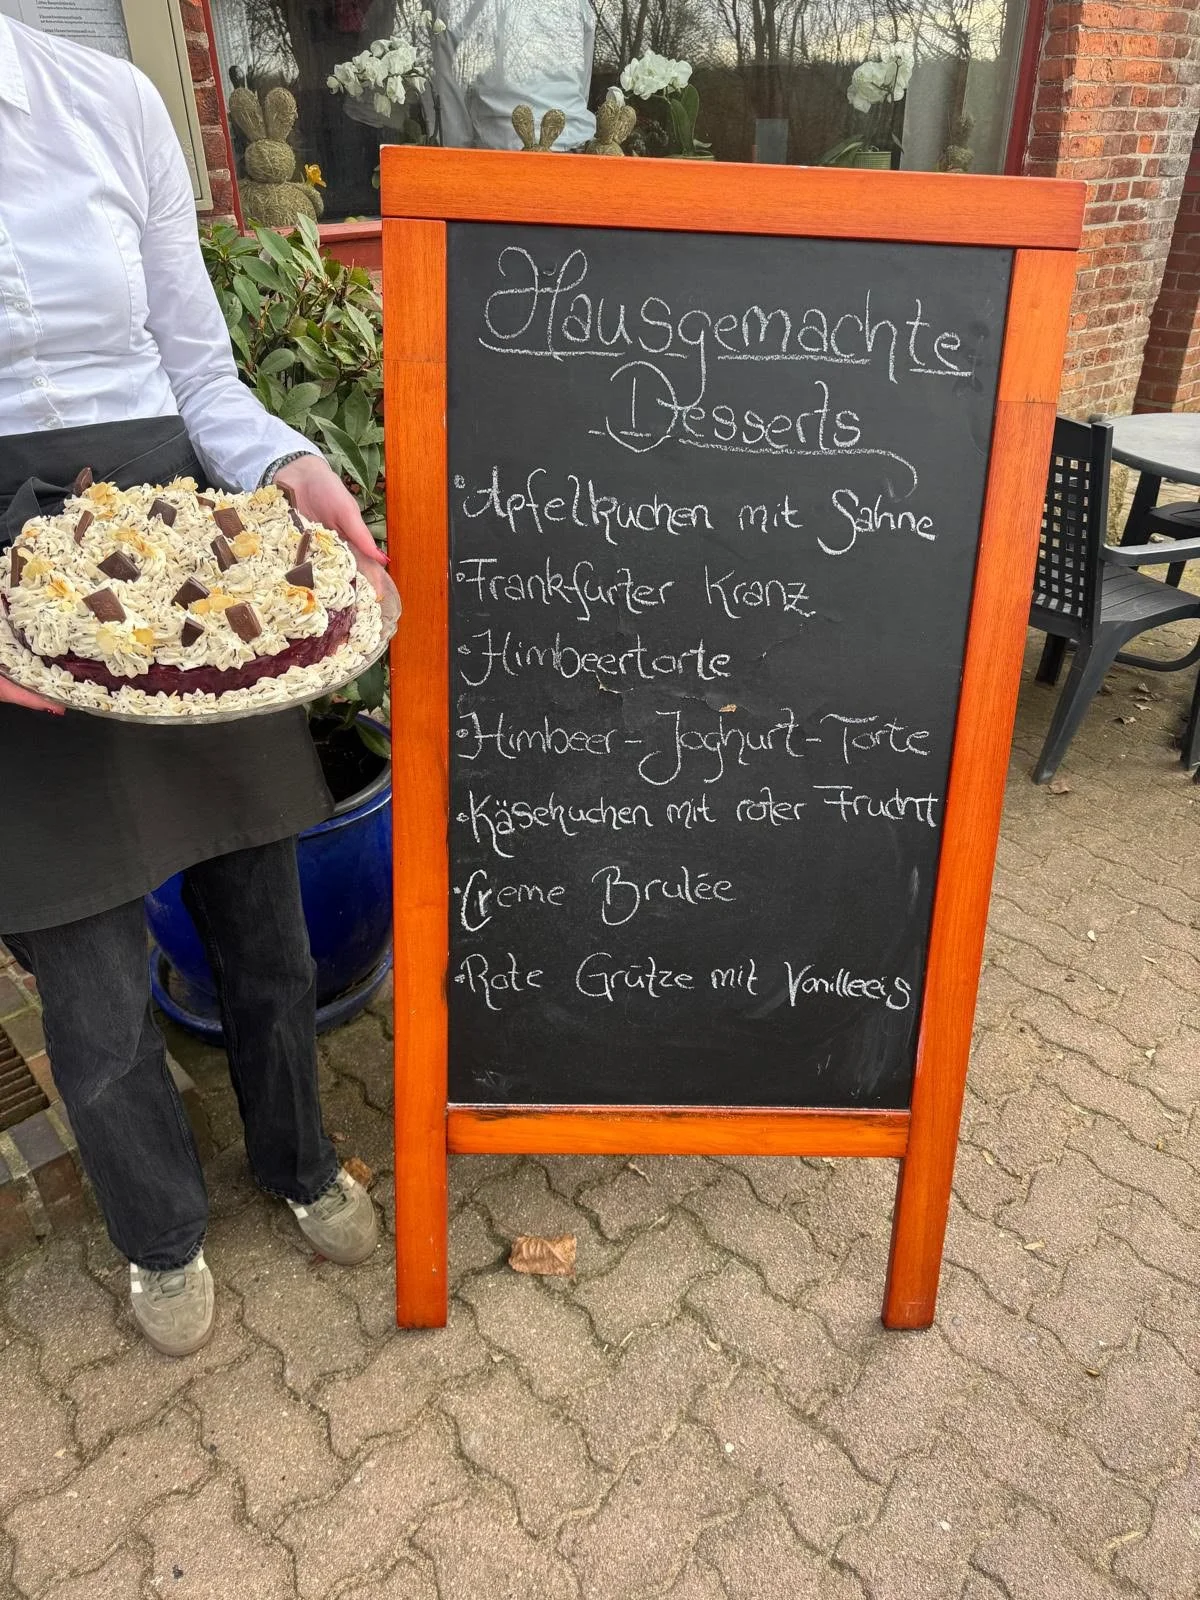 Hausgemachte
Desserts
• Apfelkuchen mit Sahne
• Frankfurter Kranz
• Himbeertorte
• Himbeer-Joghurt-Torte
• Käsekuchen mit roter Frucht
• Creme Brulée
• Rote Grütze mit Vanilleeis